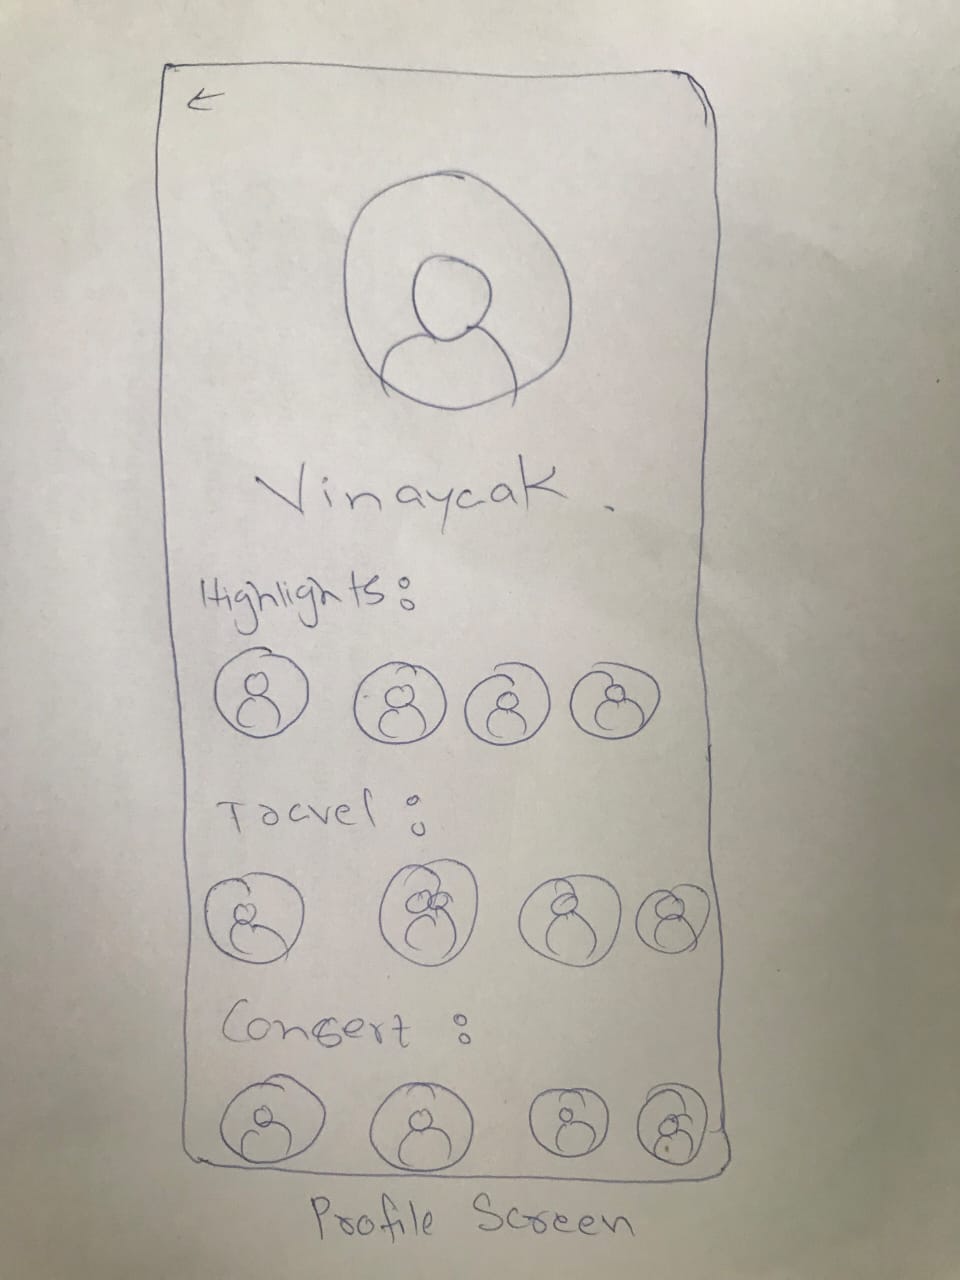 Vinaycak.
Highlights:
Tracvel:
Consert:
Profile Screen